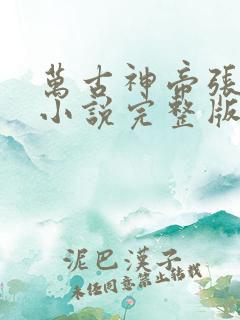 萬古神帝張
小說完整版
泥巴漢子
未經同意禁止轉載